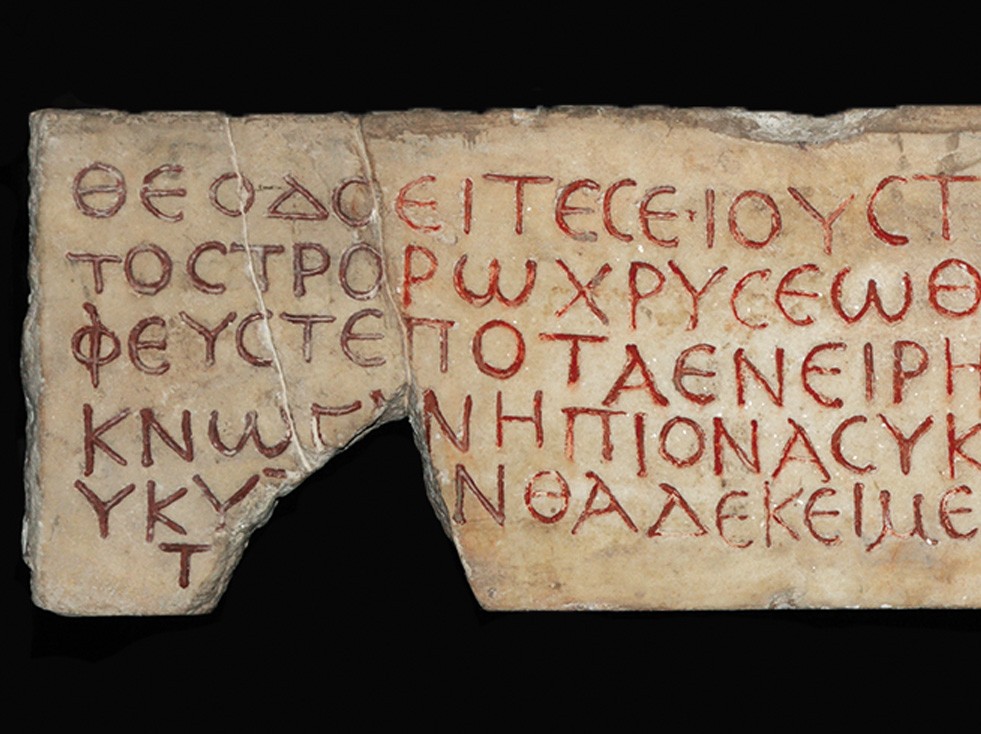 ΘΕΟΔΟΕΙΤΕϹΕ·ΙΟΥϹΤ
ΤΟϹΤΡΟΡωΧΡΥϹΕωΘ
ΦΕΥϹΤΕΠΟΤΑΕΝΕΙΡΗ
ΚΝω ΝΗΠΙΟΝΑϹΥΚ
ΥΚΥ ΝΘΑΔΕΚΕΙΜΕ
Τ